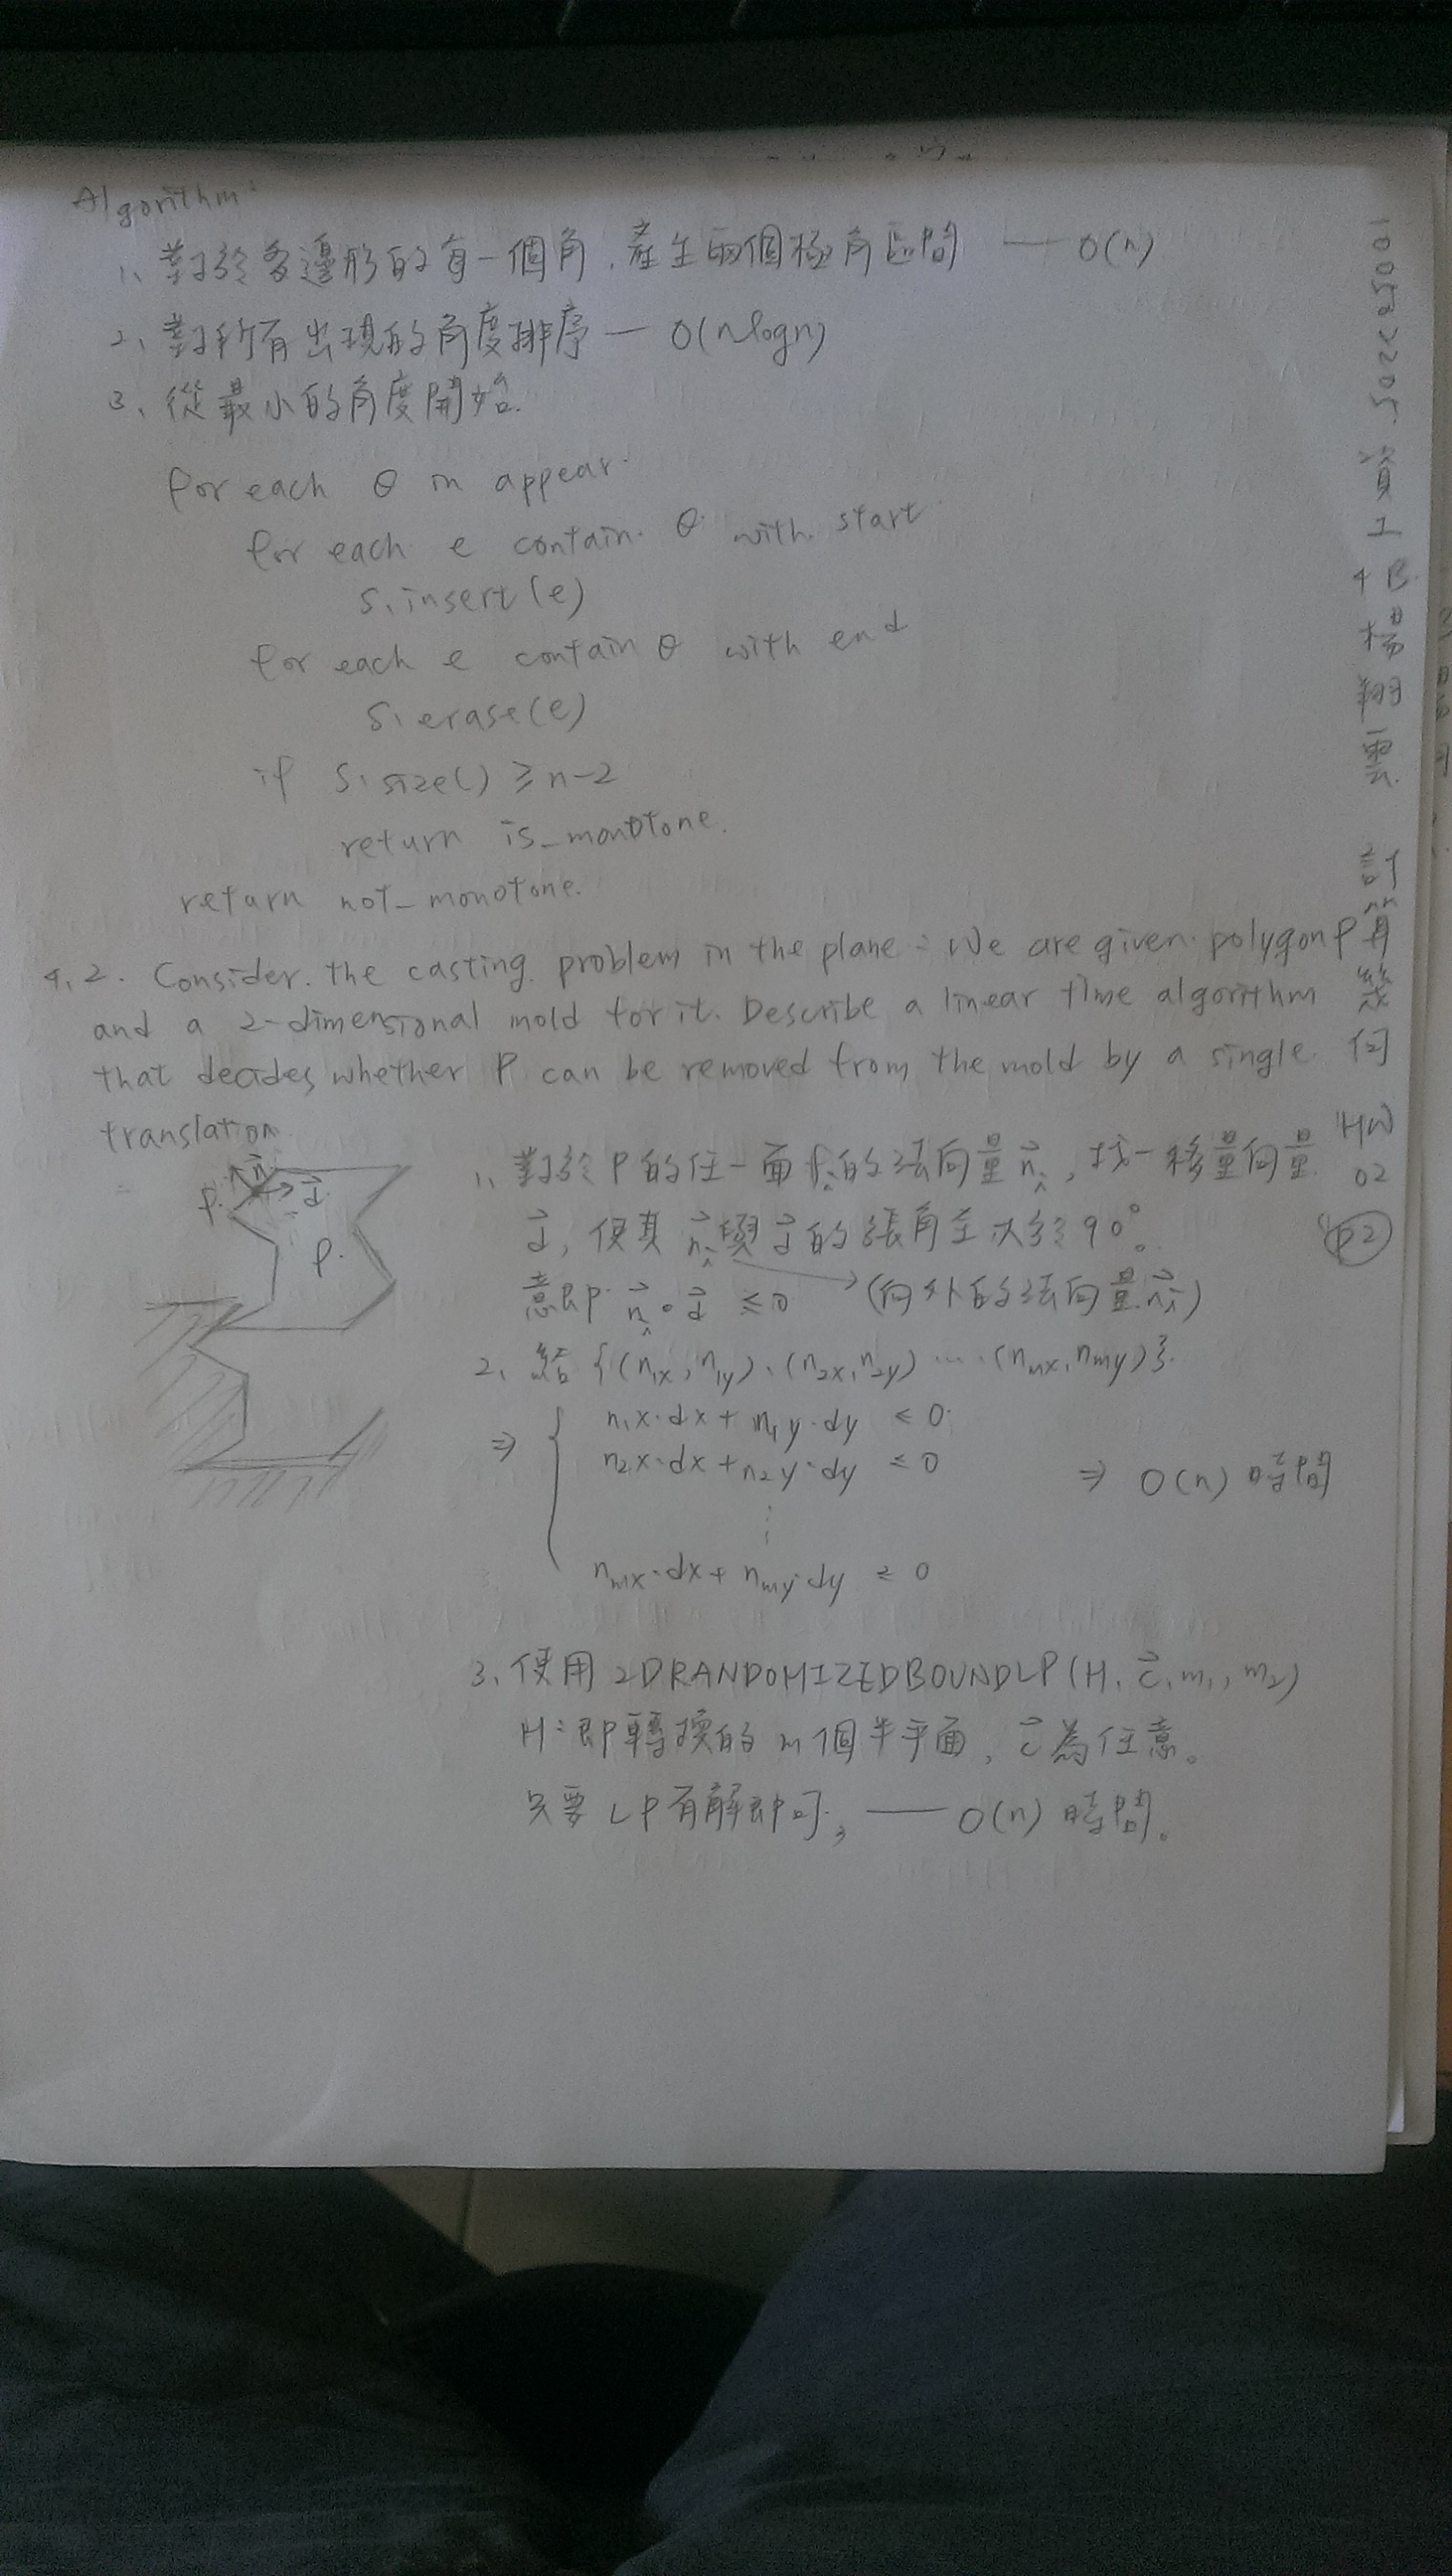 Algorithm:
1、對於多邊形的每一個角,產生兩個極角區間 — O(n)
2、對所有出現的角度排序 — O(nlogn)
3、從最小的角度開始.
for each θ in appear.
for each e contain θ with start
S.insert(e)
for each e contain θ with end
S.erase(e)
if S.size() ≥ n-2
return is_monotone.
return not_monotone.
4.2. Consider the casting problem in the plane: We are given polygon P
and a 2-dimensional mold for it. Describe a linear time algorithm
that decides whether P can be removed from the mold by a single
translation
n⃗
d⃗
P.
P.
1、對於P的任一面 fᵢ的法向量 n⃗ᵢ, 找一移量向量
d⃗, 使其 n⃗ᵢ與d⃗的張角至大於90°。
意即 n⃗ᵢ·d⃗ ≤0 →(向外的法向量n⃗ᵢ)
2、給 {(n1x, n1y)、(n2x, n2y) …、(nmx, nmy)}.
⇒ { n1x·dx + n1y·dy ≤ 0
n2x·dx + n2y·dy ≤ 0 ⇒ O(n) 時間
⋮
nmx·dx + nmy·dy ≤ 0
3、使用 2DRANDOMIZEDBOUNDLP(H, c⃗, m₁, m₂)
H:即轉換的m個半平面、c⃗為任意。
只要LP有解即可, — O(n) 時間。
00522
資工
4B
楊
翔
雲
計
算
幾
何
HW
02
p2